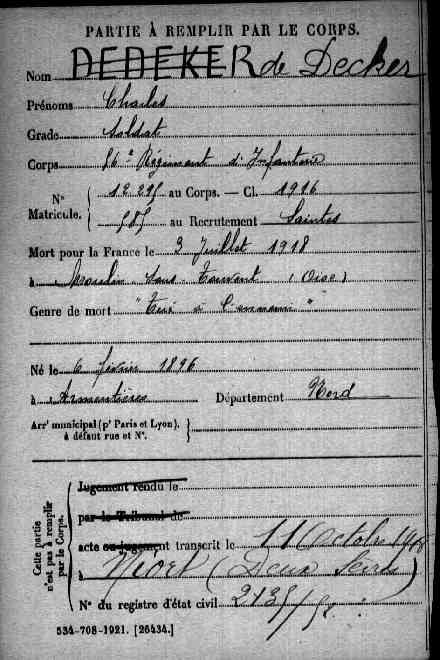 PARTIE À REMPLIR PAR LE CORPS.
Nom DEDEKER de Decker
Prénoms Charles
Grade Soldat
Corps Régiment d'Infanterie
N° Matricule. { 12 295 au Corps. — Cl. 1916
au Recrutement Saintes
Mort pour la France le 3 Juillet 1918
à Moulin sous Touvent (Oise)
Genre de mort "Tué à l'ennemi"
Né le 6 février 1896
à Armentières Département Nord
Arr' municipal (p' Paris et Lyon),
à défaut rue et N°.
Cette partie n'est pas à remplir par le Corps.
Jugement rendu le
par le Tribunal de
acte ou jugement transcrit le 11 Octobre 1918
à Niort (Deux Sèvres)
N° du registre d'état civil
534-708-1921. [26434.]